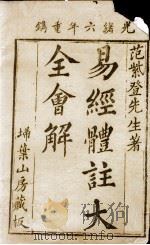 光緒六年重鐫
范紫登先生著
易經體註大
全會解
埽葉山房藏板